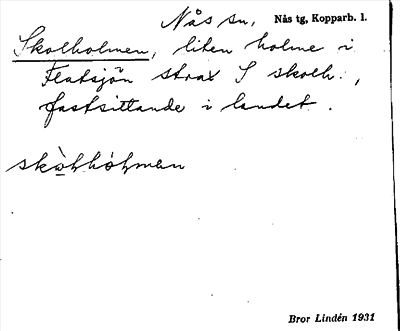 Nås sn, Nås tg, Kopparb. l.
Skolholmen, liten holme i
Flatsjön strax S skolh.,
fastsittande i landet.
skòlhòlmen
Bror Lindén 1931